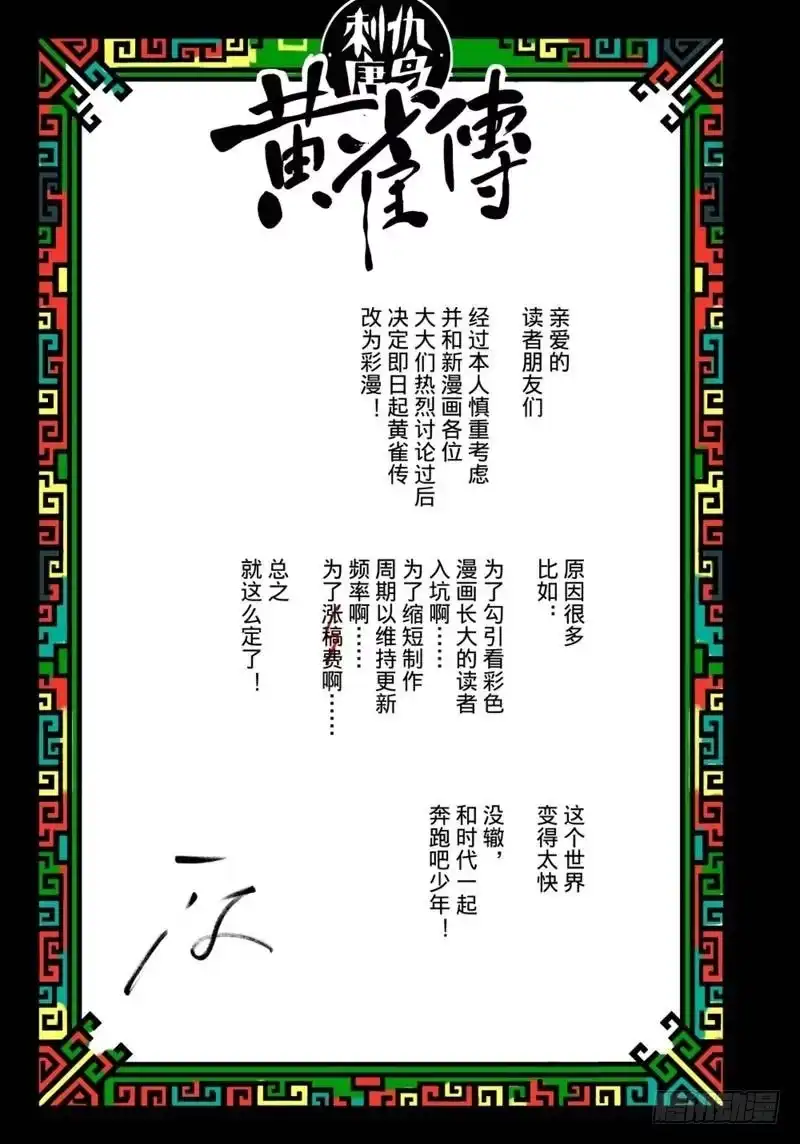 刺仇
唐鸟
黄雀傳
亲爱的
读者朋友们
经过本人慎重考虑
并和新漫画各位
大大们热烈讨论过后
决定即日起黄雀传
改为彩漫！
原因很多
比如：
为了勾引看彩色
漫画长大的读者
入坑啊……
为了缩短制作
周期以维持更新
频率啊……
为了涨稿费啊……
总之
就这么定了！
这个世界
变得太快
没辙，
和时代一起
奔跑吧少年！